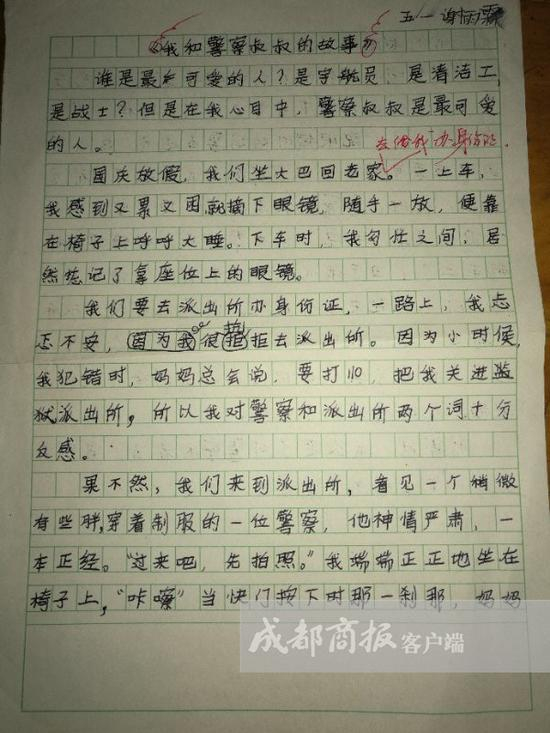 五一谢雨霖
《我和警察叔叔的故事》
谁是最可爱的人？是宇航员 是清洁工
是战士？但是在我心目中，警察叔叔是最可爱
的人。
去给我办身份证.
国庆放假，我们坐大巴回老家。一上车，
我感到又累又困就摘下眼镜，随手一放，便靠
在椅子上呼呼大睡。下车时，我匆忙之间，居
然忘记了拿座位上的眼镜。
我们要去派出所办身份证，一路上，我忐
忑不安，因为我很拒去派出所。因为小时候，
我犯错时，妈妈总会说，要打110，把我关进监
狱派出所，所以我对警察和派出所两个词十分
反感。
果不然，我们来到派出所，看见一个稍微
有些胖，穿着制服的一位警察，他神情严肃，一
本正经。“过来吧，先拍照。”我端端正正地坐在
椅子上，“咔嚓”当快门按下时那一刹那，妈妈
成都商报客户端